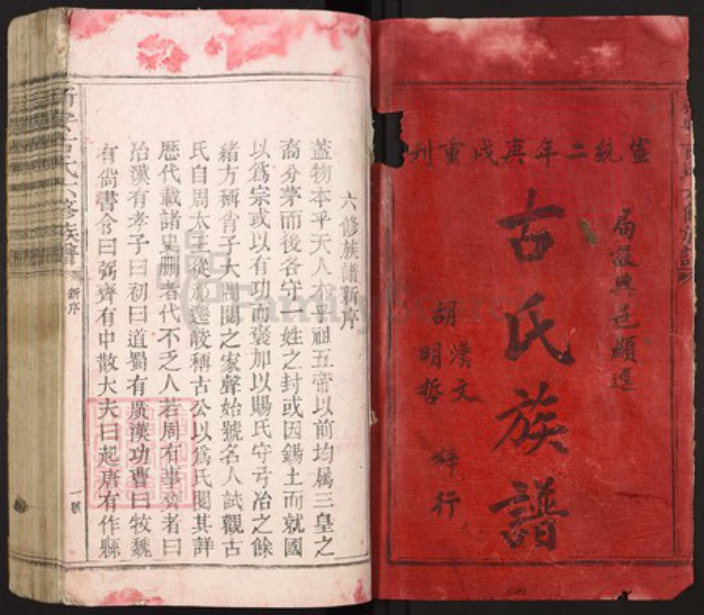 宣統二年庚戌重刊
局設興邑顯逕
古氏族譜
胡漢文
明哲
梓行
六修族譜新序
蓋物本乎天人本乎祖五帝以前均属三皇之
裔分茅而後各守一姓之封或因錫土而就國
以爲宗或以有功而褒加以賜氏守弓冶之餘
緒方稱肯子大閥閱之家聲始號名人試觀古
氏自周太王從邠遷岐稱古公以爲氏閱其詳
歷代載諸史删者代不乏人若周有事齊者曰
冶漢有孝子曰初曰道蜀有廣漢功曹曰牧魏
有尚書令曰弼齊有中散大夫曰起唐有作縣
古氏六修族譜
新序
一號